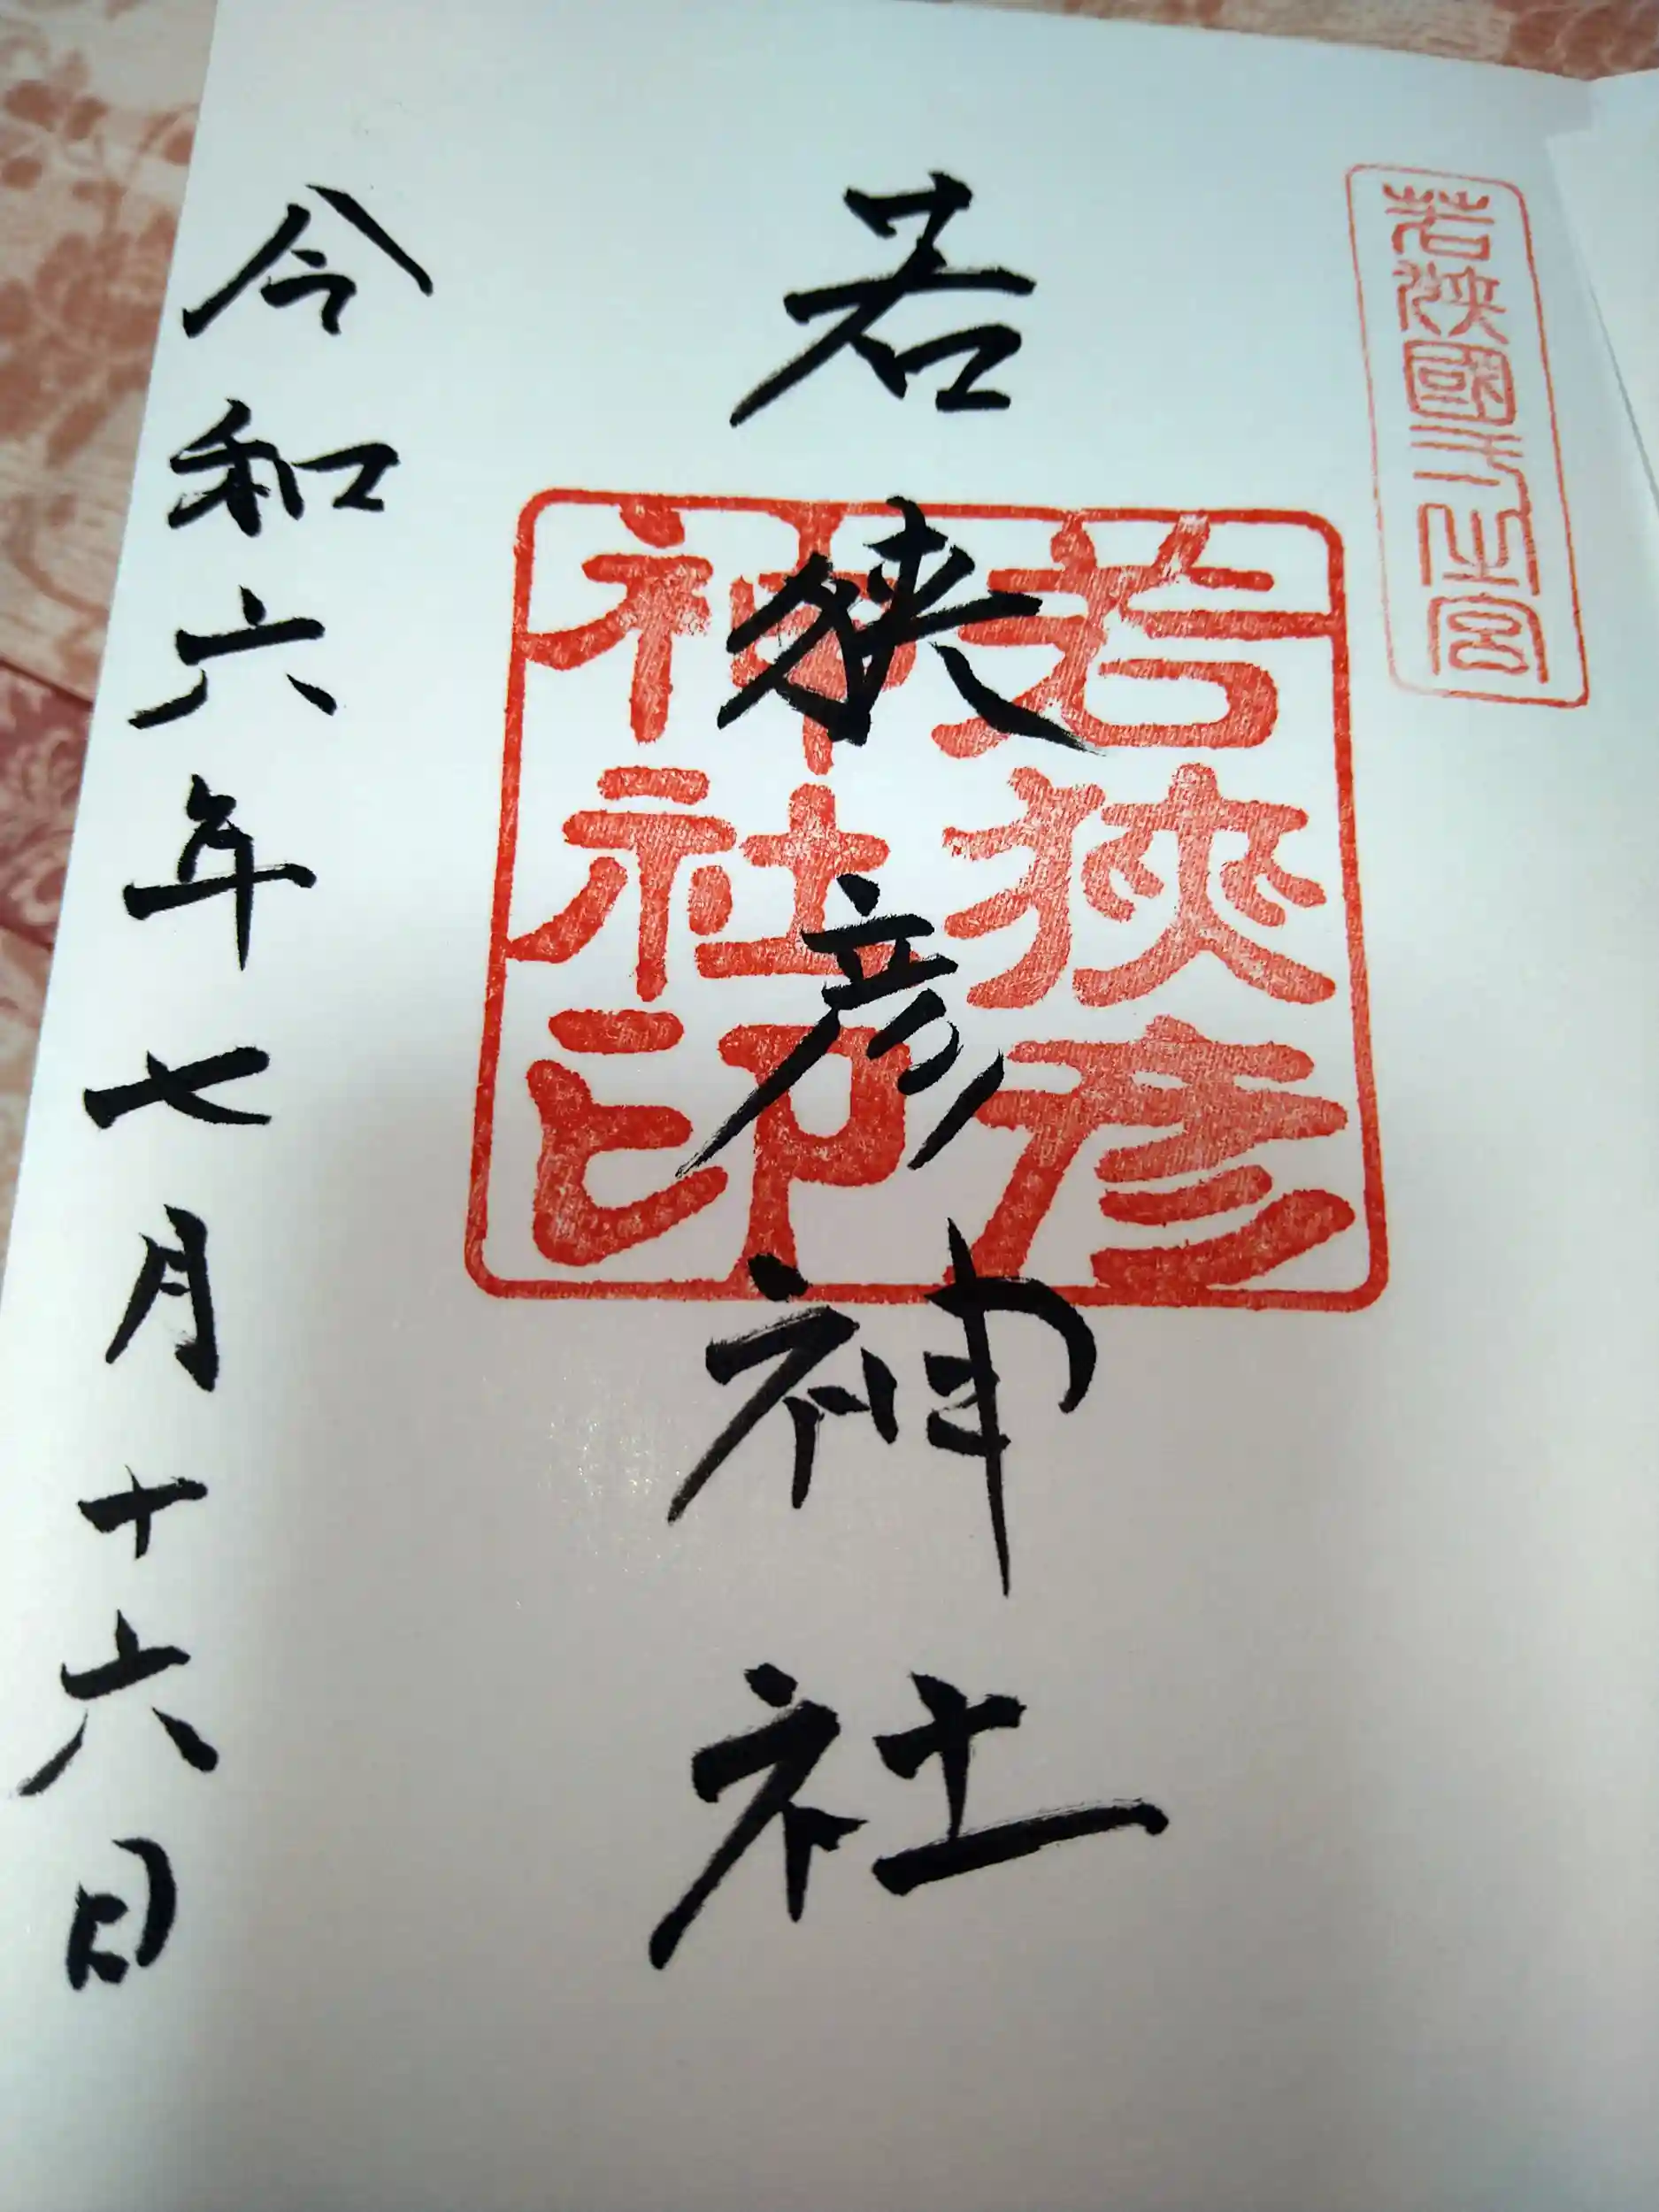 若狭國一之宮
若狹彦
神社印
若狭彦神社
令和六年七月十六日